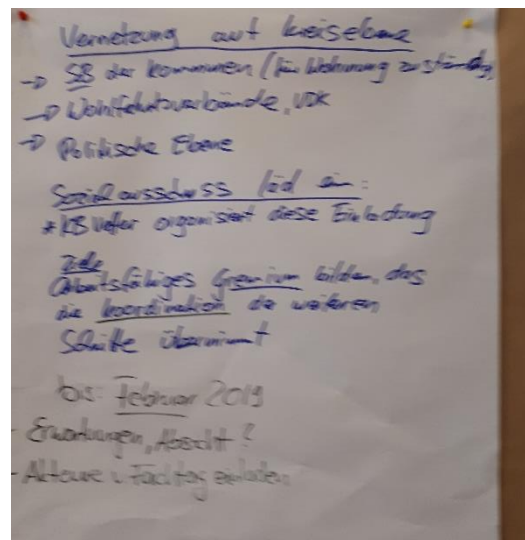 Vernetzung auf Kreisebene
→ SB der Kommunen (für Wohnung zuständig)
→ Wohlfahrtsverbände, VDK
→ Politische Ebene
Sozialausschuss läd ein:
* KB organisiert diese Einladung
Ziele
Arbeitsfähiges Gremium bilden, das
die Koordination de weiteren
Schritte übernimmt
bis: Februar 2019
- Erwartungen, Absicht?
- Akteure v. Fachtag einladen